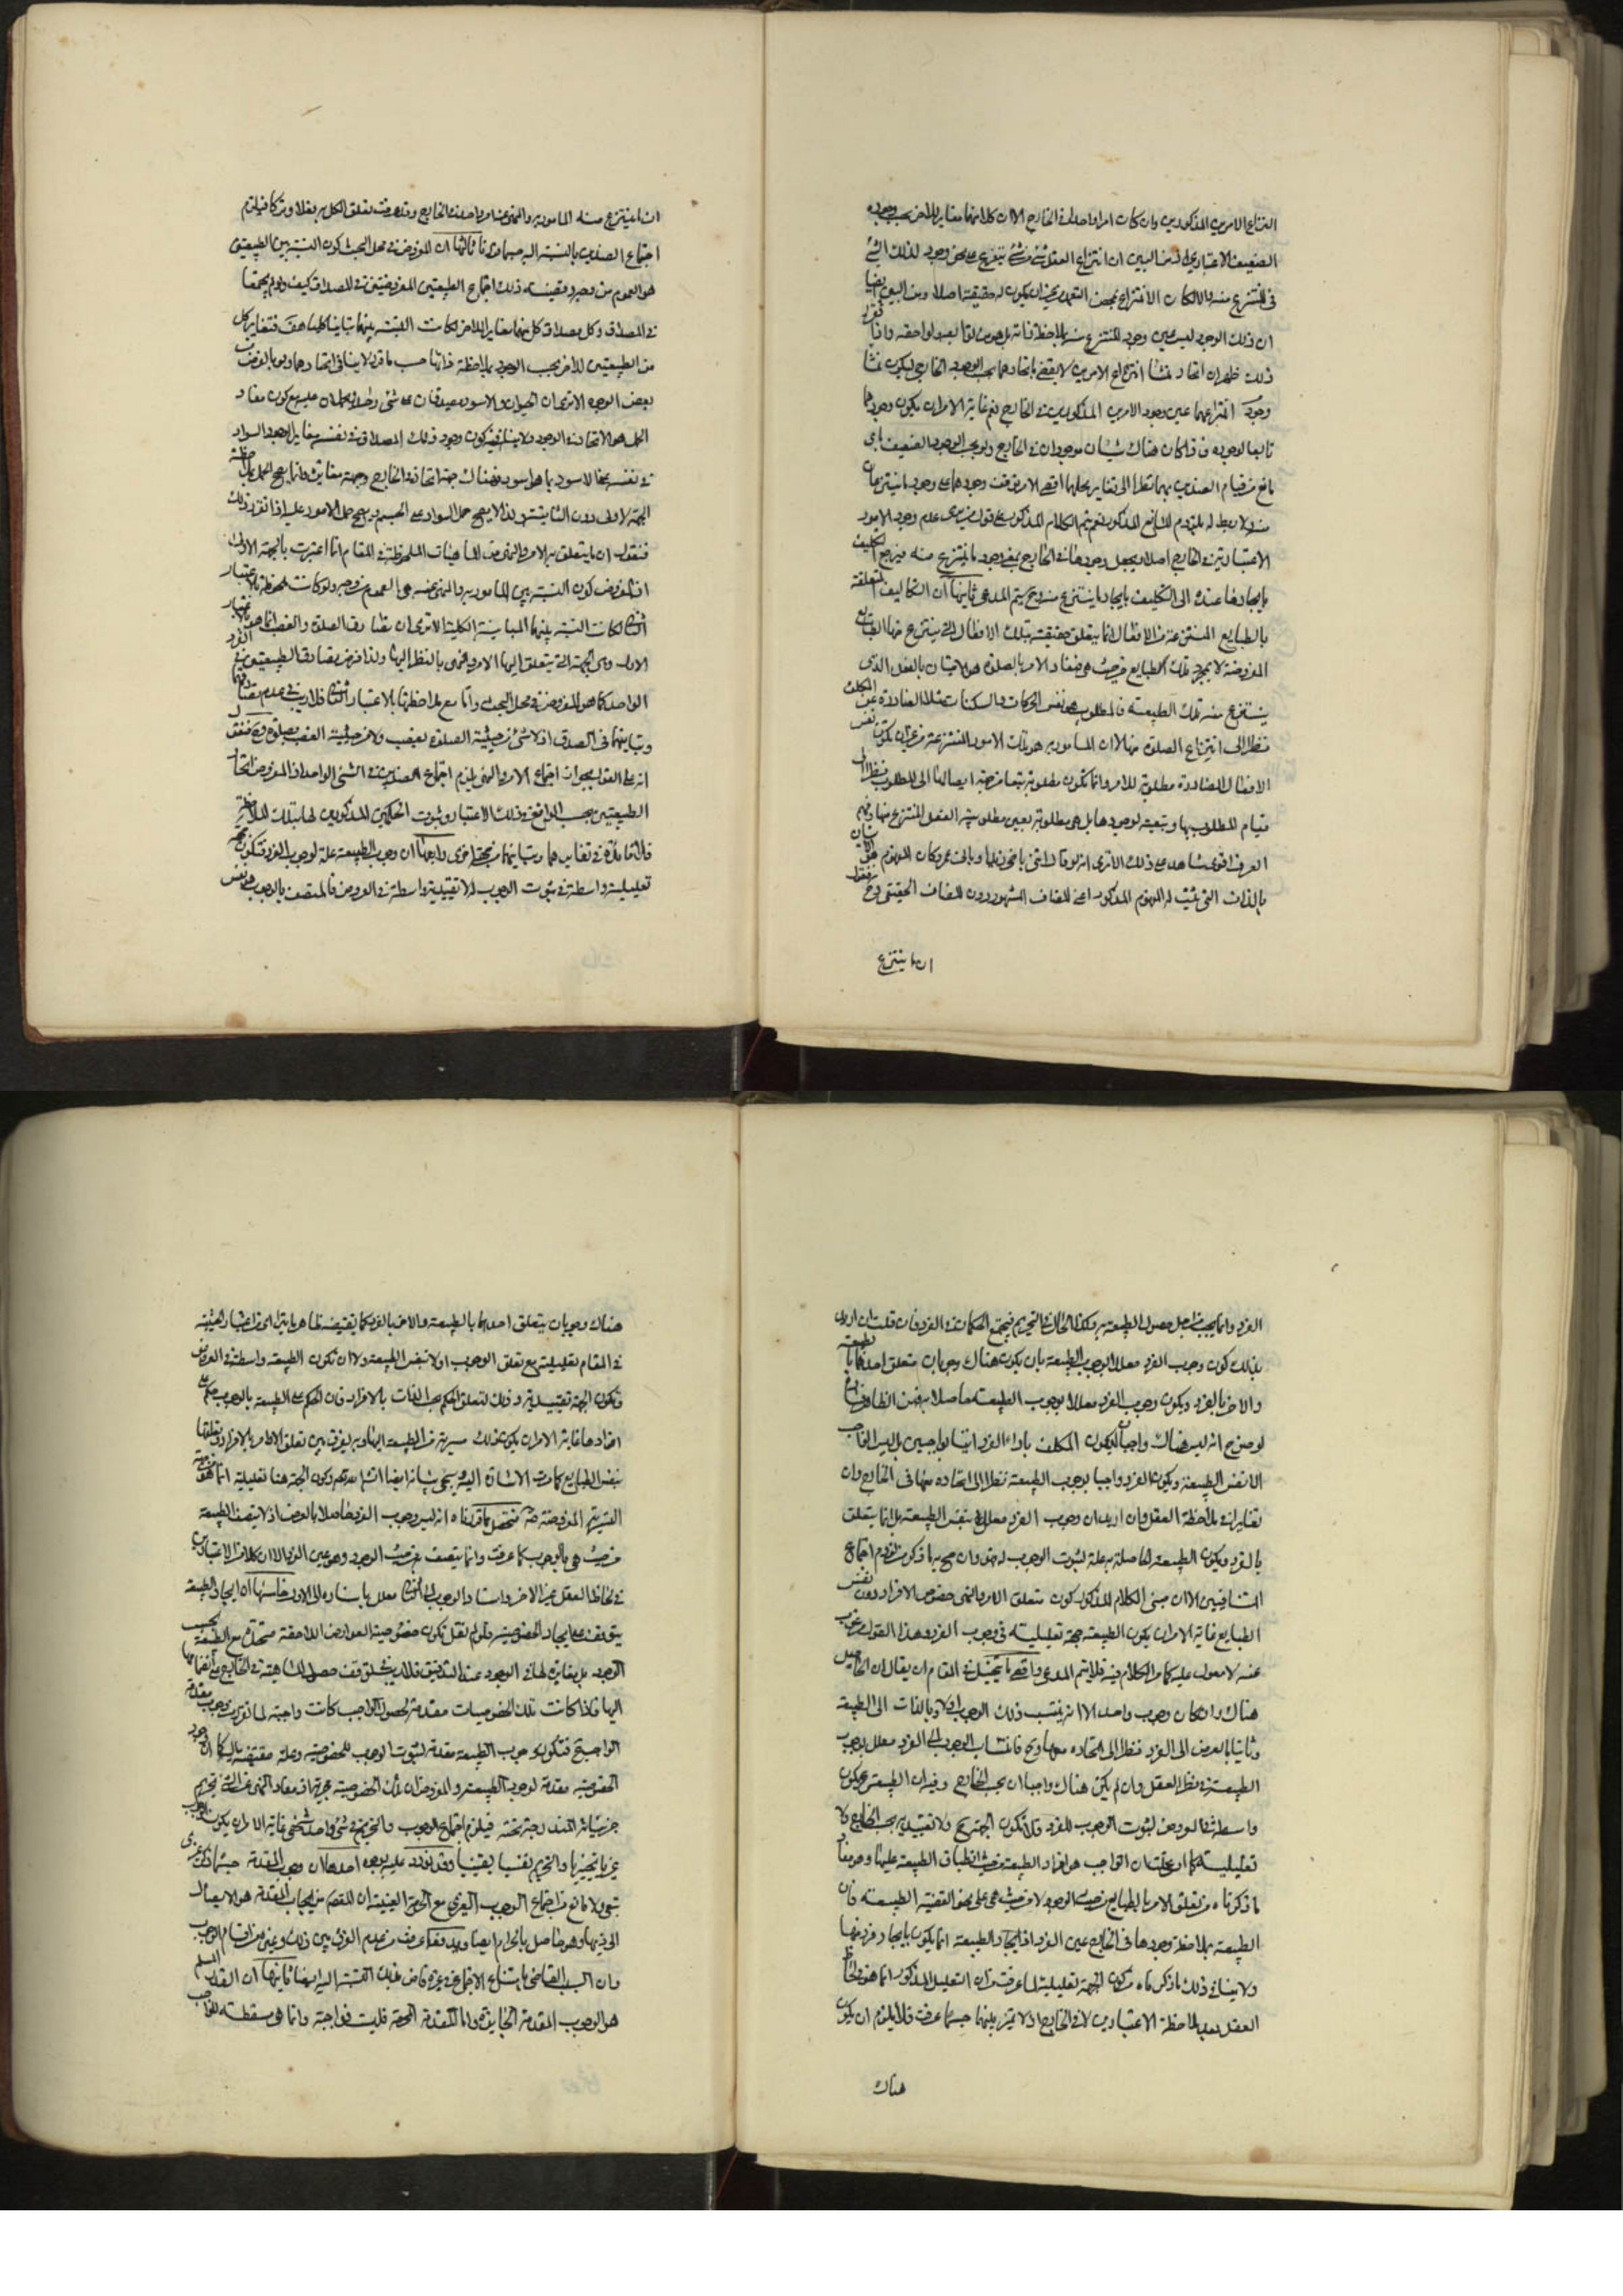 انتزاع الامرين المذكورين وان كان امرا واحدا في الخارج الا ان كلا منهما مغاير للاخر بحسب وجوده
الضعيف الاعتباري اذ من البين ان انتزاع العقل شيئا من شئ يتفرع على نحو وجود لذلك الشئ
في المنتزع منه والا لكان الانتزاع بمحض التعمل من غير ان يكون له حقيقة اصلا ومن البين ايضا
ان ذلك الوجود ليس عين وجود المنتزع منه بملاحظة ذاته بل هو من توابعه ولواحقه واذا تقرر
ذلك ظهر ان اتحاد منشا انتزاع الامرين لا يقضي باتحادهما بحسب الوجود الخارجي ليكون منشا
وجود انتزاعهما عين وجود الامرين المذكورين في الخارج نعم غاية الامر ان يكون وجودهما
تابعا لوجوده فاذا كان هناك شيئان موجودان في الخارج ولو بحسب الوجود الضعيف فاي
مانع من قيام الضدين بهما نظرا الى تغاير محلهما اقصى الامر توقف وجودهما على وجود ما ينتزعان
منه ولا ربط له بلزوم المانع المذكور نعم يتم الكلام المذكور على قول من يرى عدم وجود الامور
الاعتبارية في الخارج اصلا ويجعل وجودها في الخارج بمعنى وجود ما ينتزع منه فيرجع التكليف
بايجادها عنده الى التكليف بايجاد ما ينتزع منه وح يتم المدعى ثانيها ان التكاليف المتعلقة
بالطبايع المنتزعة من الافعال انما يتعلق حقيقة بتلك الافعال التي ينتزع منها الطبايع
المفروضة لا بمجرد تلك الطبايع من حيث هي فمفاد الامر بالصلوة هو الاتيان بالفعل الذي
ينتزع منه تلك الطبيعة فالمطلوب هو نفس الحركات والسكنات مثلا الصادرة عن المكلف
نظرا الى انتزاع الصلوة منها لا ان المامور به هو تلك الامور المنتزعة من غير ان تكون نفس
الافعال الصادرة مطلوبة للامر وانما تكون مطلوبة تبعا من جهة ايصالها الى المطلوب نظرا الى
قيام المطلوب بها وتبعيته لوجودها بل هي مطلوبة بعين مطلوبية الفعل المنتزع منها وفهم
العرف اقوى شاهد على ذلك الا ترى انه لو قال ائتني باخي زيد او باب عمرو كان المفهوم هو الاتيان
بالذات التي يثبت له المفهوم المذكور اعني المضاف المشهور دون المضاف الحقيقي وح فنقول
ان ما ينتزع
ان ما ينتزع منه المامور به والمنهي عنه امر واحد في الخارج وقد عرفت تعلق الكل به فعلا وتركا فيلزم
اجتماع الضدين بالنسبة اليه حسبما مر ثالثها ان المفروض في محل البحث كون النسبة بين الطبيعتين
هو العموم من وجه وقضية ذلك اجتماع الطبيعتين المفروضتين في المصداق كيف ولو لم يجتمعا
في المصداق وكان مصداق كل منهما مغايرا للاخر لكانت النسبة بينهما تباينا كليا هف فتغاير كل
من الطبيعتين للاخر بحسب الوجود بملاحظة ذاتها حسب ما قرر لا ينافي اتحادهما ولو بالعرض ب
بعض الوجوه الا ترى ان الحيوان والاسود يصدقان على شئ واحد ويحملان عليه مع كون مفاد
الحمل هو الاتحاد في الوجود ولا ينافيه كون وجود ذلك المصداق في نفسه مغاير الوجود السواد
في نفسه بخلاف الاسود بما هو اسود فهناك جهة اتحاد في الخارج وجهة مغايرة وانما يصح الحمل بملاحظة
الجهة الاولى دون الثانية ولذا لا يصح حمل السواد على الجسم ويصح حمل الاسود عليه اذا تقرر ذلك
فنقول ان ما يتعلق به الامر والنهي من الماهيات الملحوظة في المقام انما اعتبرت بالجهة الاولى
اذ المفروض كون النسبة بين المامور به والمنهي عنه هي العموم من وجه ولو كانت ملحوظة بالاعتبار
الثاني لكانت النسبة بينهما المباينة الكلية الا ترى ان تصادق الصلوة والغصب انما هو بالاعتبار
الاول وهي الجهة التي يتعلق اليها الامر والنهي بالنظر اليها ولذا فرض تصادق الطبيعتين في الفرد
الواحد كما هو المفروض في محل البحث واما مع ملاحظتها بالاعتبار الثاني فلا ريب في عدم تصادقهما
وتباينهما في الصدق اذ لا شئ من حيثية الصلوة بغصب ولا من حيثية الغصب بصلوة وح فنقول
انه على القول بجواز اجتماع الامر والنهي يلزم اجتماع الضدين في الشئ الواحد اذ المفروض اتحاد
الطبيعتين بحسب الواقع في ذلك الاعتبار وثبوت الحكمين المذكورين لها بتلك الملاحظة
فالفائدة في تغايرهما وتباينهما من جهة اخرى رابعها ان وجوب الطبيعة علة لوجوب الفرد فتكون جهة
تعليلية واسطة في ثبوت الوجوب له لا تقييدية واسطة في العروض فالمتصف بالوجوب هو نفس
الفرد وانما يجب من اجل حصول الطبيعة به وكذا الحال في التحريم فيجتمع الحكمان في الفرد فان قلت ان اريد
بذلك كون وجوب الفرد معللا بوجوب الطبيعة بان يكون هناك وجوبان يتعلق احدهما بالطبيعة
والاخر بالفرد ويكون وجوب الفرد معللا بوجوب الطبيعة حاصلا به فمن الظاهر فساده
لوضوح انه ليس هناك واجبان ليكون المكلف باداء الفرد اتيا بواجبين بل ليس الواجب
الا نفس الطبيعة ويكون الفرد واجبا بوجوب الطبيعة نظرا الى اتحاده معها في الخارج وان
تغايرا في ملاحظة العقل وان اريد ان وجوب الفرد معلل بنفس الطبيعة بل انما يتعلق
بالفرد ويكون الطبيعة الحاصلة به علة لثبوت الوجوب له فهو وان صح به ما ذكر من لزوم اجتماع
المتنافيين الا ان مبنى الكلام المذكور كون متعلق الامر والنهي خصوص الافراد دون نفس
الطبايع غاية الامر ان يكون الطبيعة جهة تعليلية في وجوب الفرد وهذا القول مرغوب
عنه لا معول عليه كما مر الكلام فيه فلا يتم المدعى واقصى ما يتخيل في المقام ان يقال ان الحاصل
هناك وان كان وجوب واحد الا انه ينتسب ذلك الوجوب اولا وبالذات الى الطبيعة
وثانيا بالعرض الى الفرد نظرا الى اتحاده معها وح فانتساب الوجوب الى الفرد معلل بوجوب
الطبيعة في نظر العقل وان لم يكن هناك واجبان بحسب الخارج وفيه ان الطبيعة ح يكون
واسطة في العروض لثبوت الوجوب للفرد فلا تكون الجهة ح ولا تقييدية بحسب الخارج لا
تعليلية كما ادعى قلت ان الواجب هو افراد الطبيعة من حيث انطباق الطبيعة عليها وهو معنى
ما ذكرناه من تعلق الامر بالطبايع من حيث الوجود لا من حيث هي على نحو القضية الطبيعية فان
الطبيعة بملاحظة وجودها في الخارج عين الفرد اذ ايجاد الطبيعة انما يكون بايجاد فرد منها
ولا ينافي ذلك ما ذكرناه من كون الجهة تعليلية لما عرفت من ان التعليل المذكور انما هو في لحاظ
العقل بعد ملاحظة الاعتبارين لا في الخارج اذ لا تميز بينهما حسبما عرفت فلا يلزم ان يكون
هناك
هناك وجوبان يتعلق احدهما بالطبيعة والاخر بالفرد كما يقتضيه ظاهر ما يترا اى من اعتبار الحيثية
في المقام تعليلية مع تعلق الوجوب اولا بنفس الطبيعة ولا ان تكون الطبيعة واسطة في العروض
وتكون الجهة تقييدية وذلك لتعلق الحكم بحسب الذات بالافراد فان الحكم على الطبيعة بالوجوب حكم على
افرادها غاية الامر ان يكون هناك سراية من الطبيعة اليها وبه يفرق بين تعلق الاوامر بالافراد وتعلقها
بنفس الطبايع كما مرت الاشارة اليه ويجئ بيانه ايضا انشاء الله تعالى وكون الجهة هنا تعليلية انما هو من جهة
السراية المفروضة فتحصل مما قررناه انه ليس وجوب الفرد حاصلا بالعرض اذ لا يتصف الطبيعة
من حيث هي بالوجوب كما عرفت وانما يتصف به من حيث الوجود وهو عين الفرد الا ان كلا من الاعتبارين
في لحاظ العقل غير الاخر واسناد الوجوب الى الثاني معلل باسناده الى الاول خامسها ان ايجاد الطبيعة
يتوقف على ايجاد الخصوصية ولو لم نقل بكون خصوصية العوارض اللاحقة متحدة مع الطبيعة بحسب
الوجود بل مغايرة لها في الوجود عند التدقيق فلا ريب في توقف حصول الماهية في الخارج على انضمامها
اليها فاذا كانت تلك الخصوصيات مقدمة لحصول الواجب كانت واجبة لما تقرر من وجوب مقدمة
الواجب فتكون وجوب الطبيعة مقدمة لثبوت الوجوب للخصوصية وعلة مقتضية له كما ان وجود
الخصوصية مقدمة لوجود الطبيعة والمفروض ان تلك الخصوصية محرمة اذ مفاد النهي عن الشئ تحريم
جزئياته المندرجة تحته فيلزم اجتماع الوجوب والتحريم في شئ واحد شخصي غاية الامر ان يكون الوجوب
غيريا تخييريا والتحريم نفسيا تعيينيا وقد يورد عليه بوجوه احدها ان وجوب المقدمة حسبما ذكر غيري
تبعي ولا مانع من اجتماع الوجوب الغيري مع الحرمة العينية اذ المقصود من ايجاب المقدمة هو الايصال
الى ذيها وهو حاصل بالحرام ايضا ويدفعه ما عرفت من عدم الفرق بين ذلك وغيره من اقسام الوجوب
وان السبب القاضي بامتناع الاجتماع في غيره قاض بذلك بالنسبة اليه ايضا ثانيها ان القدر المسلم
هو الوجوب المقدمة الجايزة واما المقدمة المحرمة فليست بواجبة وانما هي مسقطة للواجب